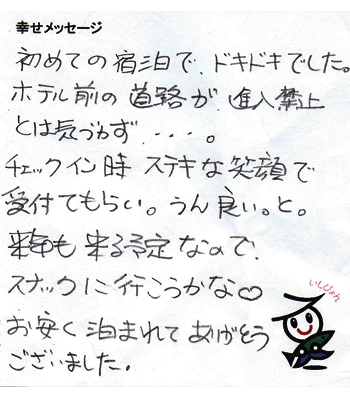 幸せメッセージ
初めての宿泊で、ドキドキでした。
ホテル前の道路が、進入禁止
とは気づかず・・・・。
チェックイン時 ステキな笑顔で
受付てもらい。うん良い。と。
来年も 来る予定なので、
スナックに行こうかな♡
お安く 泊まれて ありがとう
ございました。
いしぴょん